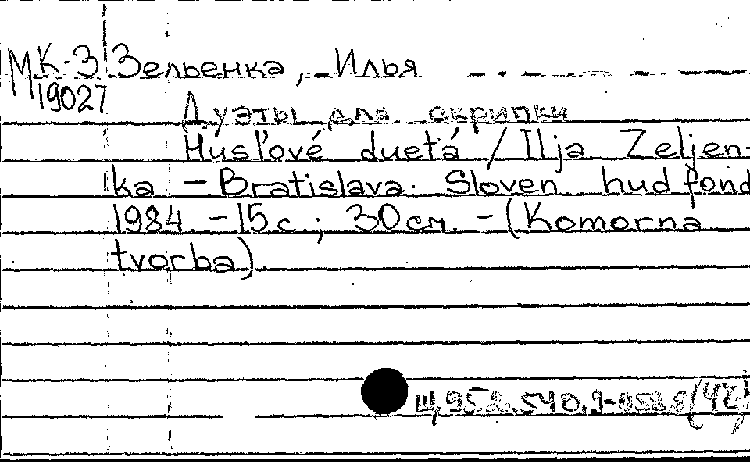 МК-3 Зельенка, Илья
19027
Дуэты для скрипки
Husľové duetá / Ilja Zeljen-
ka – Bratislava: Sloven. hud fond
1984 – 15 с.; 30 см. – (Komorna
tvorba)